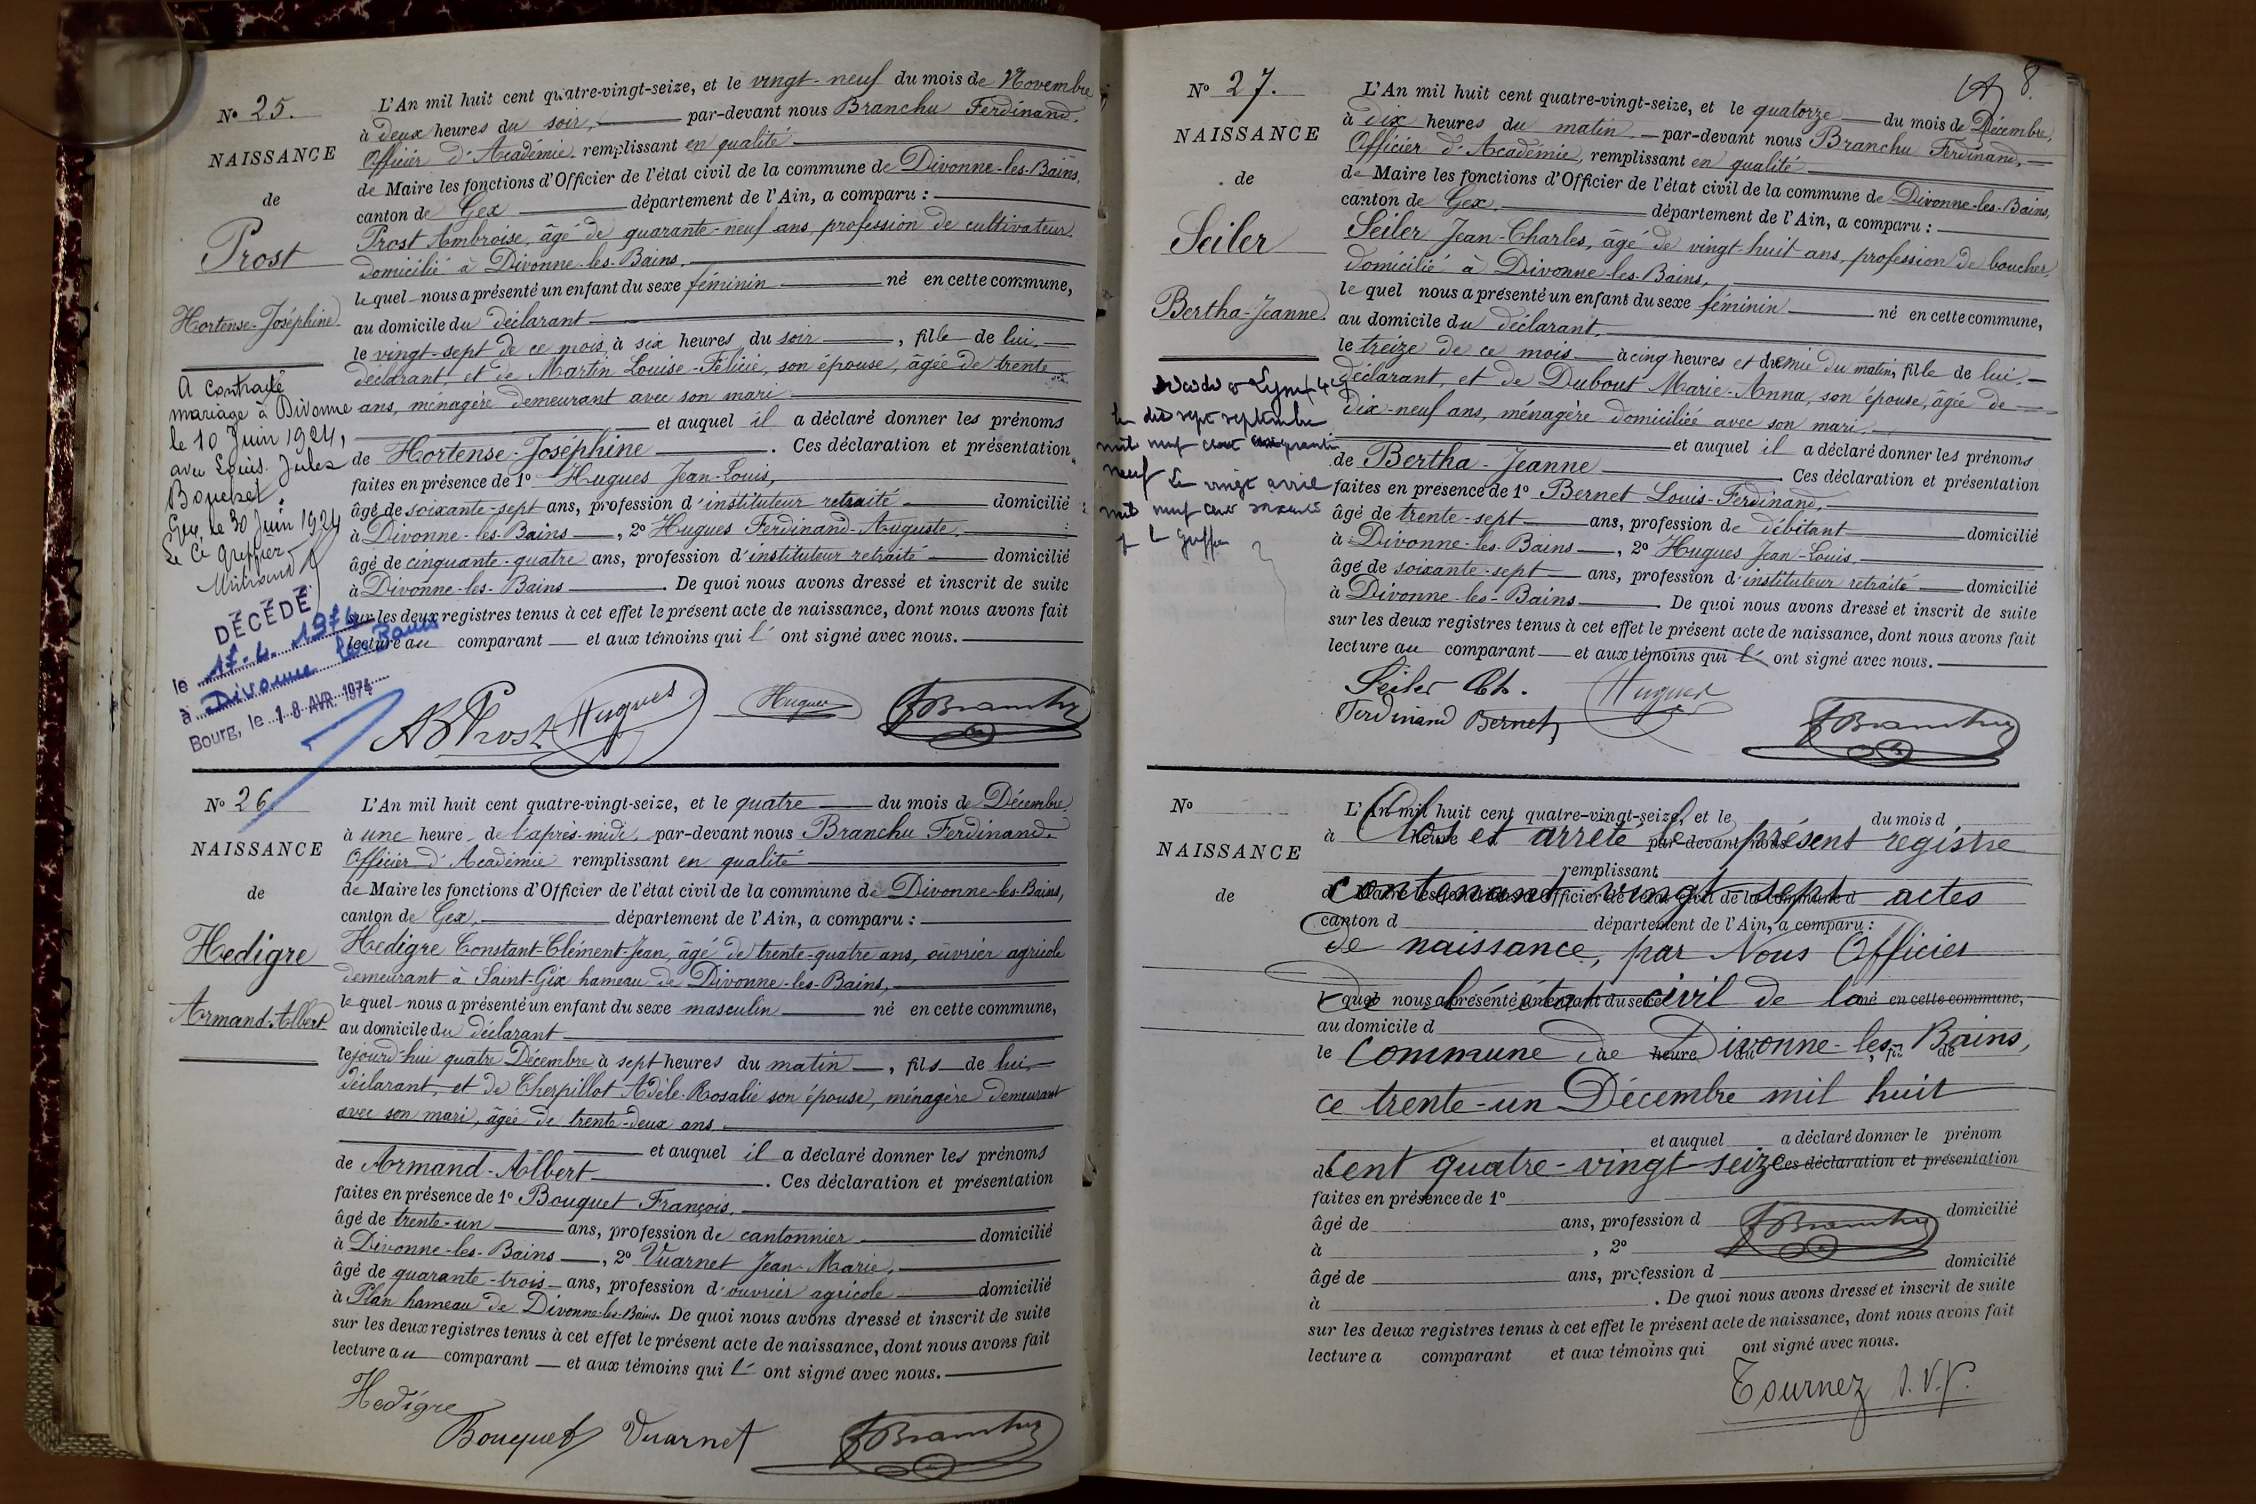 Nº 25.
NAISSANCE
de
Prost
Hortense-Joséphine
A contracté
mariage à Divonne
le 10 Juin 1924,
avec Louis Jules
Bouchet.
Gex, le 30 Juin 1924
Le Cⁱ Greffier
DÉCÉDÉ
le 17.4.1974
à Divonne les Bains
Bourg, le 18 AVR. 1974
L'An mil huit cent quatre-vingt-seize, et le vingt-neuf du mois de Novembre
à deux heures du soir, par-devant nous Branchu Ferdinand,
Officier d'Académie, remplissant en qualité
de Maire les fonctions d'Officier de l'état civil de la commune de Divonne-les-Bains,
canton de Gex département de l'Ain, a comparu :
Prost Ambroise, âgé de quarante-neuf ans, profession de cultivateur
domicilié à Divonne-les-Bains,
lequel nous a présenté un enfant du sexe féminin né en cette commune,
au domicile du déclarant
le vingt-sept de ce mois à six heures du soir, fille de lui,
déclarant, et de Martin Louise-Félicie, son épouse, âgée de trente
ans, ménagère demeurant avec son mari
et auquel il a déclaré donner les prénoms
de Hortense-Joséphine. Ces déclaration et présentation
faites en présence de 1º Hugues Jean-Louis,
âgé de soixante-sept ans, profession d'instituteur retraité domicilié
à Divonne-les-Bains, 2º Hugues Ferdinand-Auguste,
âgé de cinquante-quatre ans, profession d'instituteur retraité domicilié
à Divonne-les-Bains. De quoi nous avons dressé et inscrit de suite
sur les deux registres tenus à cet effet le présent acte de naissance, dont nous avons fait
lecture au comparant et aux témoins qui l' ont signé avec nous.
A Prost Hugues Hugues F Branchu
Nº 26
NAISSANCE
de
Hedigre
Armand-Albert
L'An mil huit cent quatre-vingt-seize, et le quatre du mois de Décembre
à une heure de l'après-midi, par-devant nous Branchu Ferdinand,
Officier d'Académie remplissant en qualité
de Maire les fonctions d'Officier de l'état civil de la commune de Divonne-les-Bains,
canton de Gex, département de l'Ain, a comparu :
Hedigre Constant-Clément-Jean, âgé de trente-quatre ans, ouvrier agricole
demeurant à Saint-Gix hameau de Divonne-les-Bains,
lequel nous a présenté un enfant du sexe masculin né en cette commune,
au domicile du déclarant
lejourd'hui quatre Décembre à sept heures du matin, fils de lui
déclarant, et de Cherpillot Adèle-Rosalie son épouse, ménagère demeurant
avec son mari, âgée de trente-deux ans
et auquel il a déclaré donner les prénoms
de Armand-Albert. Ces déclaration et présentation
faites en présence de 1º Bouquet François,
âgé de trente-un ans, profession de cantonnier domicilié
à Divonne-les-Bains, 2º Vuarnet Jean-Marie,
âgé de quarante-trois ans, profession d'ouvrier agricole domicilié
à Plan hameau de Divonne-les-Bains. De quoi nous avons dressé et inscrit de suite
sur les deux registres tenus à cet effet le présent acte de naissance, dont nous avons fait
lecture au comparant et aux témoins qui l' ont signé avec nous.
Hedigre
Bouquet Vuarnet F Branchu
8
Nº 27.
NAISSANCE
de
Seiler
Bertha-Jeanne
le dix sept septembre
mil neuf cent quarante
neuf Le vingt avril
mil neuf cent soixante
L'An mil huit cent quatre-vingt-seize, et le quatorze du mois de Décembre,
à dix heures du matin par-devant nous Branchu Ferdinand,
Officier d'Académie, remplissant en qualité
de Maire les fonctions d'Officier de l'état civil de la commune de Divonne-les-Bains,
canton de Gex, département de l'Ain, a comparu :
Seiler Jean-Charles, âgé de vingt-huit ans, profession de boucher
domicilié à Divonne-les-Bains,
lequel nous a présenté un enfant du sexe féminin né en cette commune,
au domicile du déclarant,
le treize de ce mois à cinq heures et demie du matin, fille de lui,
déclarant, et de Dubout Marie-Anna, son épouse, agée de
dix-neuf ans, ménagère domiciliée avec son mari
et auquel il a déclaré donner les prénoms
de Bertha-Jeanne. Ces déclaration et présentation
faites en présence de 1º Bernet Louis-Ferdinand,
âgé de trente-sept ans, profession de débitant domicilié
à Divonne-les-Bains, 2º Hugues Jean-Louis
âgé de soixante-sept ans, profession d'instituteur retraité domicilié
à Divonne-les-Bains. De quoi nous avons dressé et inscrit de suite
sur les deux registres tenus à cet effet le présent acte de naissance, dont nous avons fait
lecture au comparant et aux témoins qui l' ont signé avec nous.
Seiler Ch. Hugues
Ferdinand Bernet F Branchu
Nº
NAISSANCE
de
L'An mil huit cent quatre-vingt-seize, et le du mois d
à heure par-devant nous
Clos et arrêté le présent registre
remplissant
d Maire les fonctions d'Officier de l'état civil de la commune d
contenant vingt-sept actes
canton d département de l'Ain, a comparu :
de naissance, par Nous Officier
lequel nous a présenté un enfant du sexe né en cette commune,
de l'état civil de la
au domicile d
le heure du , fi de
commune de Divonne-les-Bains,
ce trente-un Décembre mil huit
et auquel a déclaré donner le prénom
de Ces déclaration et présentation
cent quatre-vingt-seize
faites en présence de 1º
âgé de ans, profession d domicilié
F Branchu
à , 2º
âgé de ans, profession d domicilié
à . De quoi nous avons dressé et inscrit de suite
sur les deux registres tenus à cet effet le présent acte de naissance, dont nous avons fait
lecture a comparant et aux témoins qui ont signé avec nous.
Tournez S.V.P.